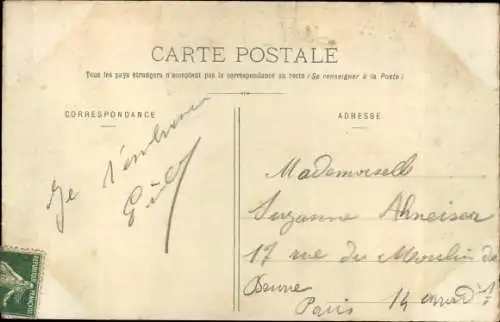 CARTE POSTALE
Tous les pays étrangers n'acceptent pas la correspondance au recto (Se renseigner à la Poste)
CORRESPONDANCE
ADRESSE
Je t'embrasse
Mademoiselle
Suzanne
17 rue du Moulin de
Beurre
Paris 14